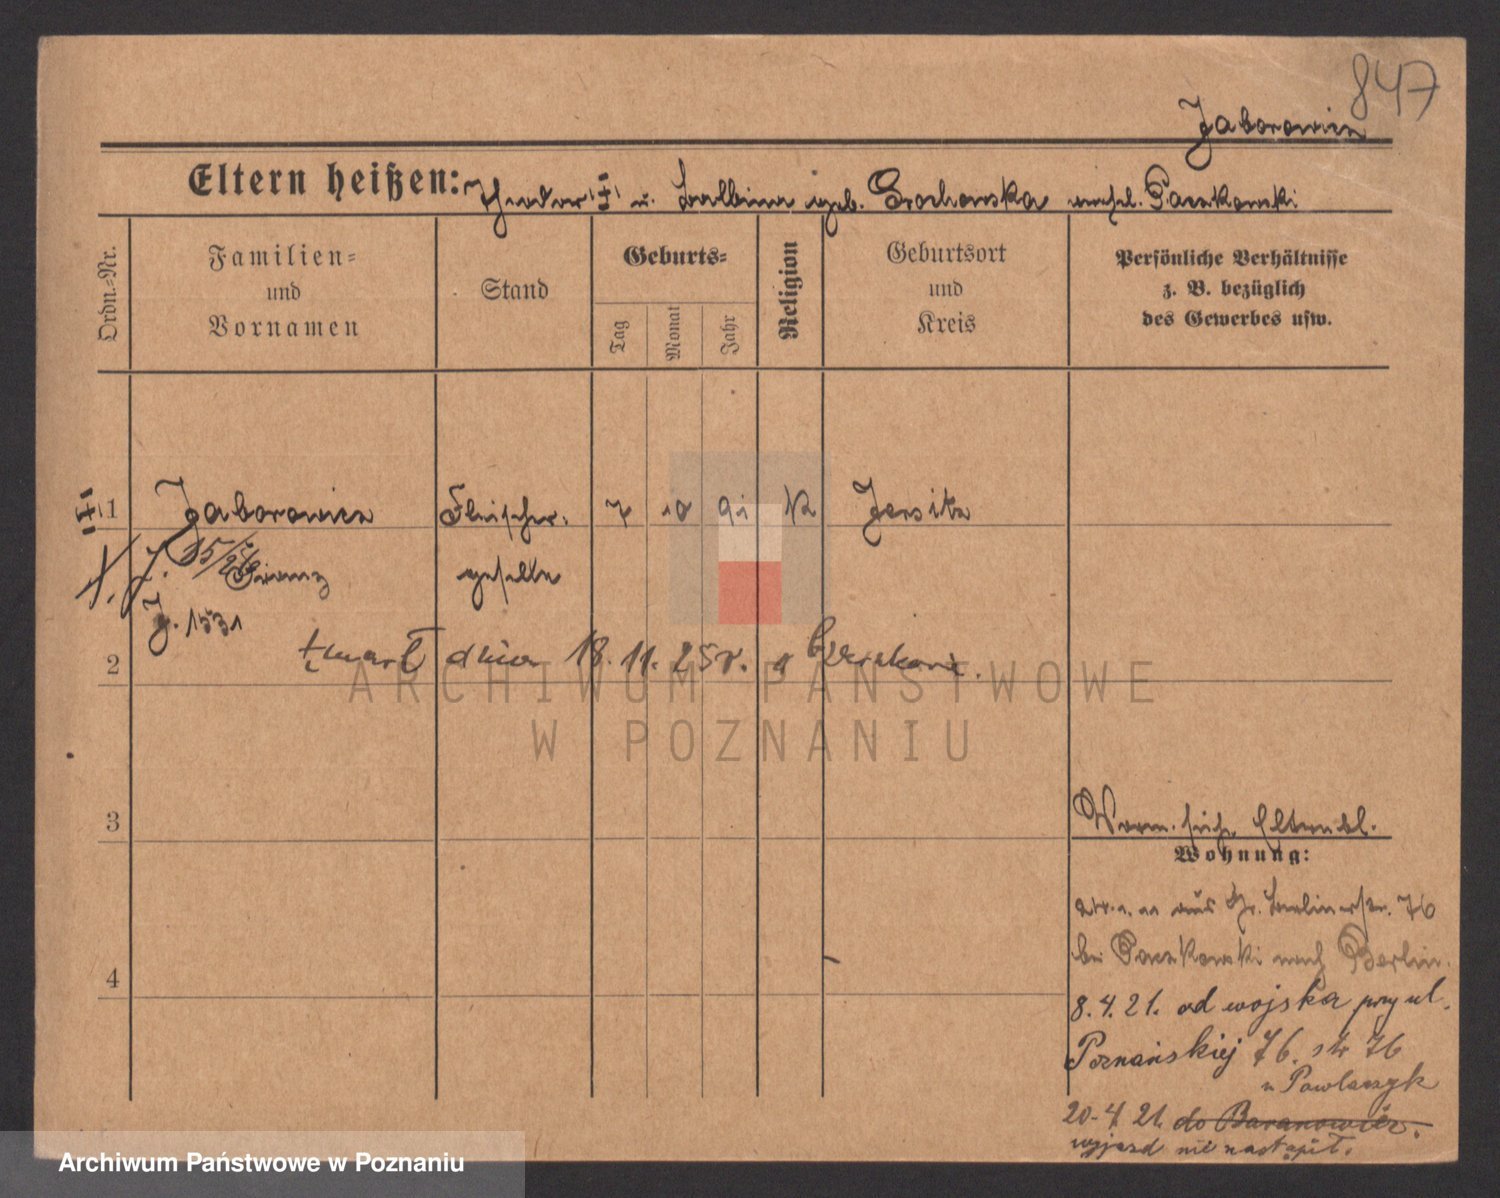 847
Jaborowicz
Eltern heißen: Theodor u. Balbina geb. Grochowska verehel. Paczkowski
Ordn.-Nr.
Familien=
und
Vornamen
Stand
Geburts=
Tag
Monat
Jahr
Religion
Geburtsort
und
Kreis
Persönliche Verhältnisse
z. B. bezüglich
des Gewerbes usw.
1 Jaborowicz Fleischer. 7 10 91 K Jersitz
Franz geselle
J. 1531
2 zmarł dnia 18. 11. 25 r.
ARCHIWUM PAŃSTWOWE
W POZNANIU
3
Worm. siehe Elternbl.
Wohnung:
aus Gr. Berlinerstr. 76
bei Paczkowski nach Berlin.
4
8.4.21. od wojska przy ul.
Poznańskiej 76. 76
u Pawlaczyk
20.4.21. do Baranowicz.
wyjazd nie nastąpił.
Archiwum Państwowe w Poznaniu